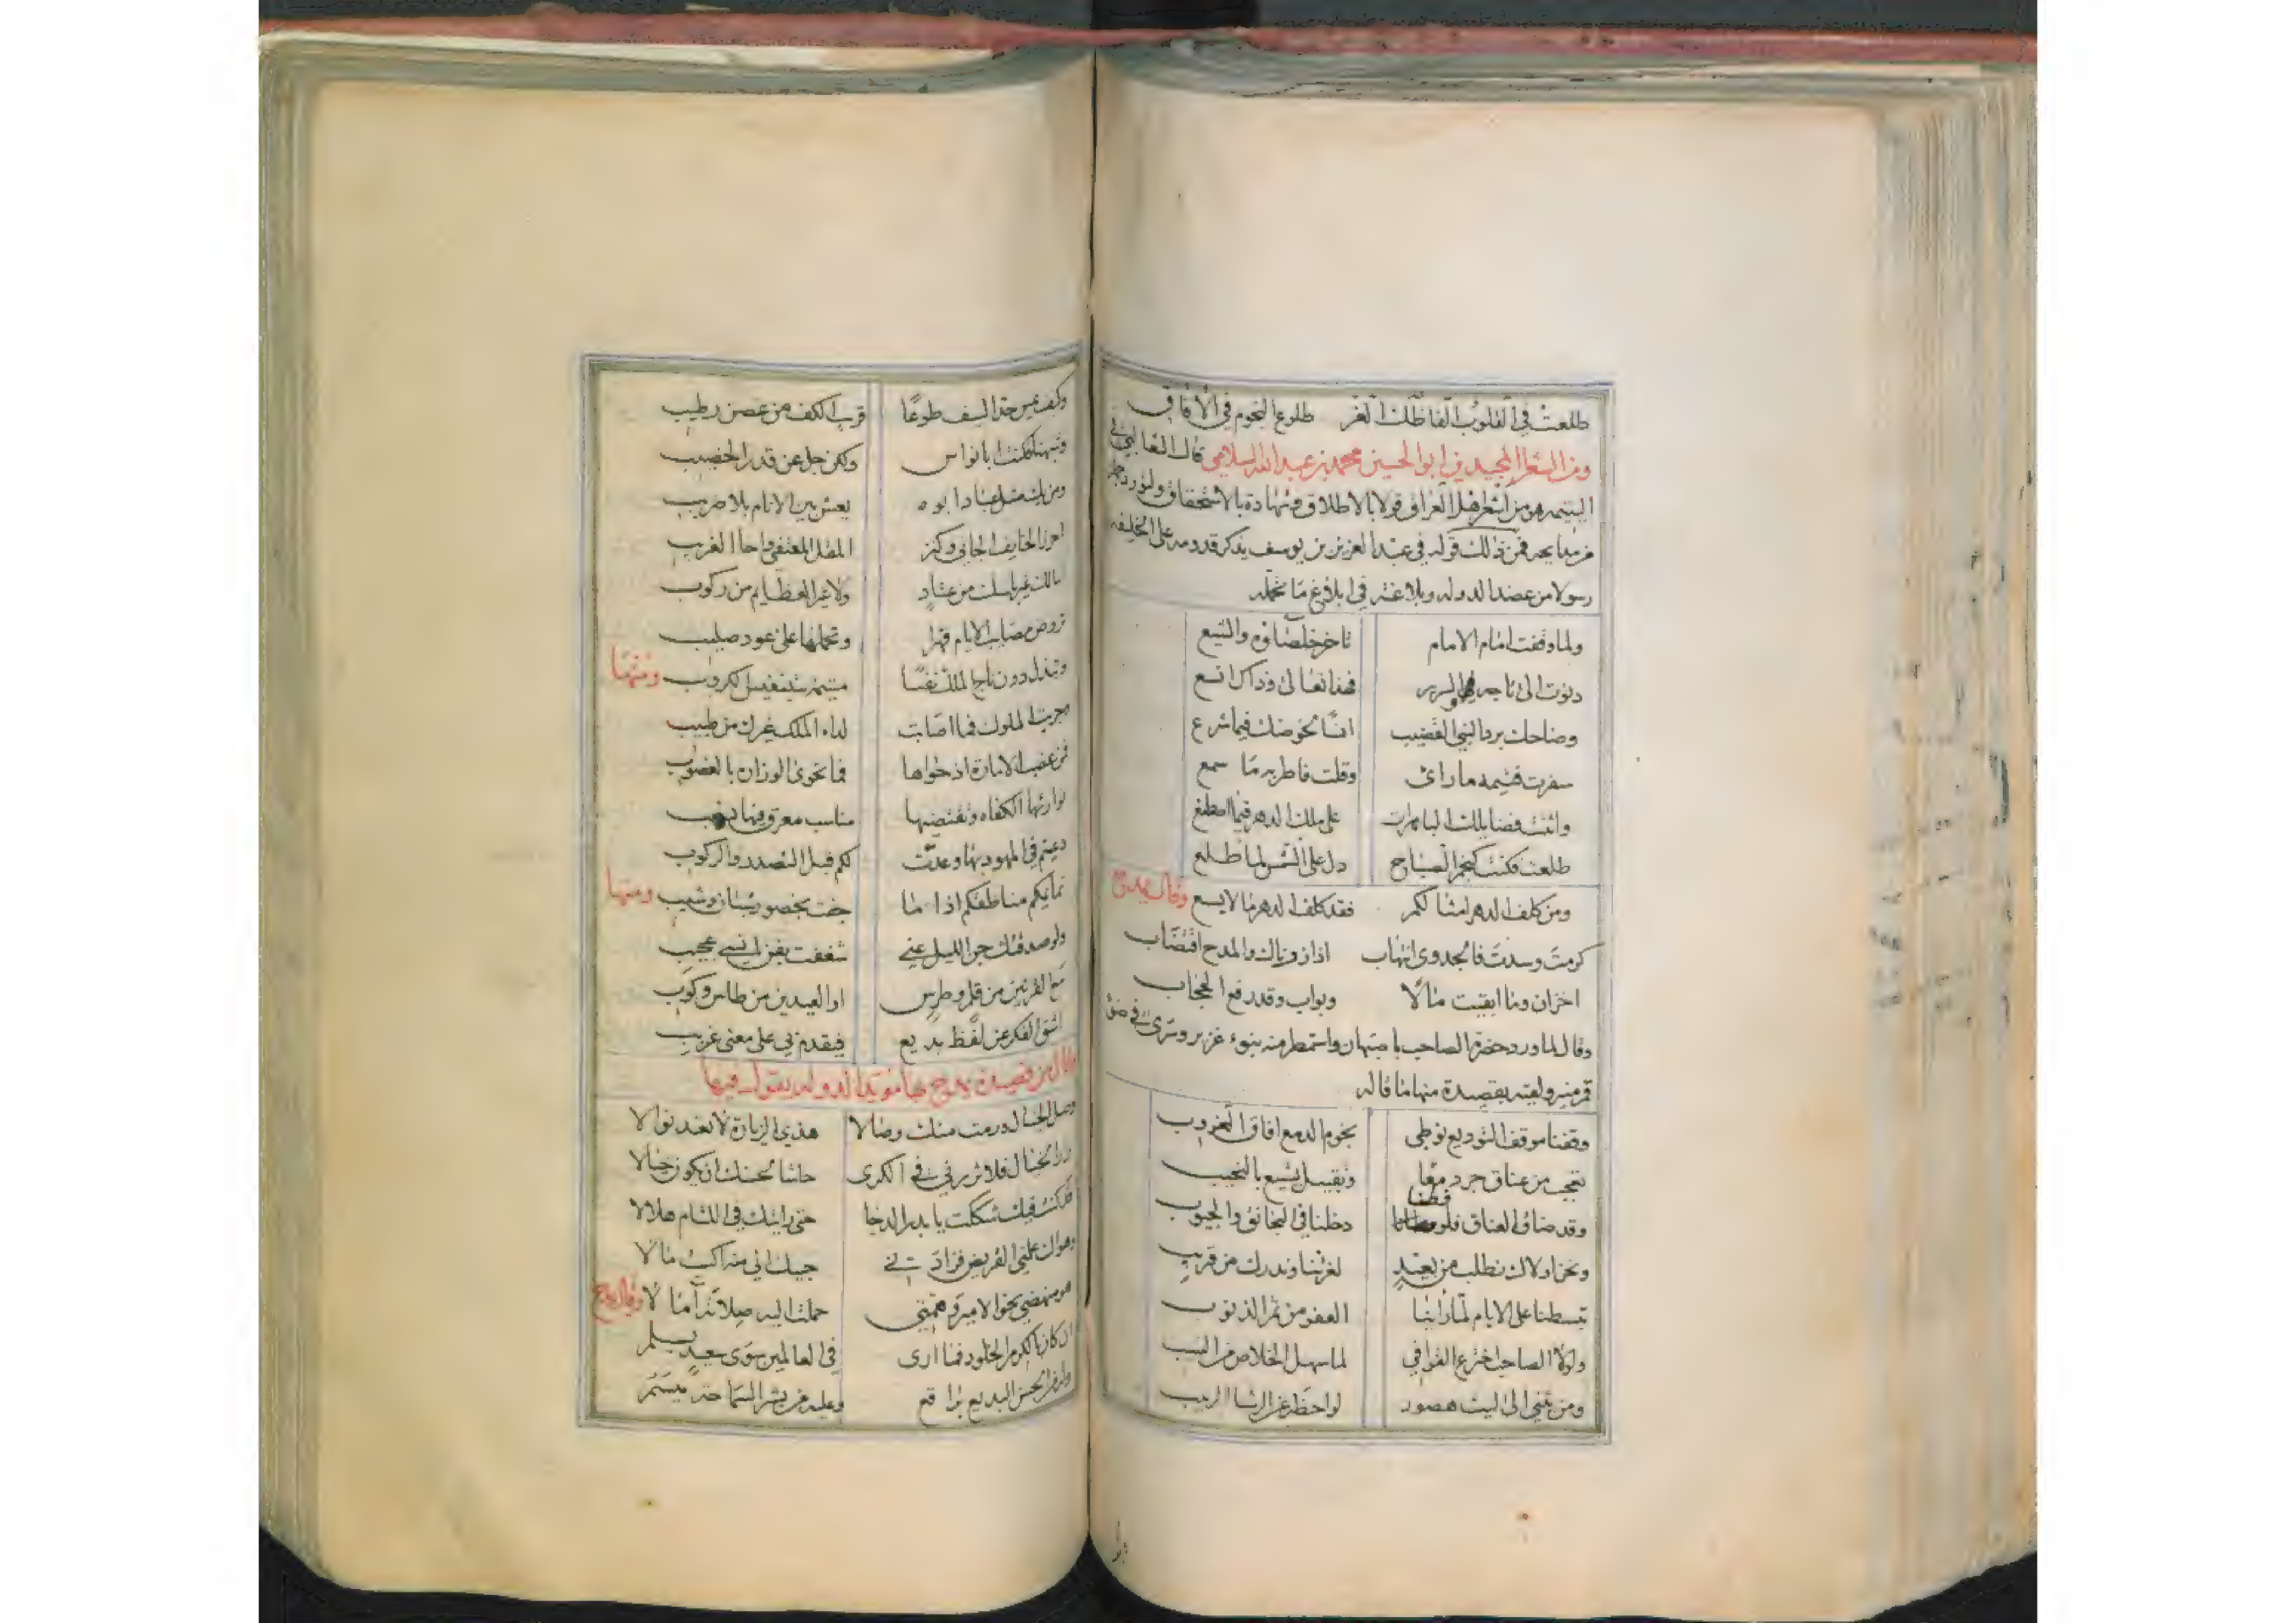 طلعت في القلوب الفاظك الغر طلوع النجوم في الآفاق
ومن الشعراء المجيدين ابو الحسين محمد بن عبدالله السلامي قال الثعالبي في
اليتيمه هو من اشعر اهل العراق قولا بالاطلاق وشهادة بالاستحقاق
فمن ذلك قوله في عبد العزيز بن يوسف يذكر قدومه على الخليفه
رسولا من عضد الدوله وبلاغته في ابلاغ ما تحمله
ولما وقفت امام الامام تاخر خلصاؤه والشيع
دنوت الى تاجه والسرير فهذا تعالى وذاك اتسع
وضاحك برد النبي القضيب
سفرت فشيمه ما راى وقلت فاطربه ما سمع
واثنت فضايلك الباهرات على ملك الدهر فيما اصطنع
طلعت فكنت كنجم الصباح دل على الشمس لما طلع
ومن كلف الدهر امثالكم فقد كلف الدهر ما لا يسع وقال يمدح
كرمت وسدت فالجدوى انتهاب اذا زرناك والمدح اقتضاب
اخزان وما ابقيت مالا وبواب وقد رفع الحجاب
وقال لما ورد حضرة الصاحب باصبهان واستمطر منه بنوء غزير وسرى في ضوء
قمر منير ولقيه بقصيدة منها ما قاله
وقفنا موقف التوديع نوطي نجوم الدمع آفاق الغروب
تعجب من عناق جر دمعا وتقبيل يشيع بالنحيب
وقد ضاق العناق فلو فطنا دخلنا في المخانق والجيوب
ونحن اولاك نطلب من بعيد لعزتنا وندرك من قريب
تبسطنا على الايام لما راينا العفو من ثمر الذنوب
ولولا الصاحب اخترع القوافي لما سهل الخلاص من النسيب
ومن يثني الى ليث هصور لواحظه عن الرشا الربيب
وكيف يمس حد السيف طوعا قريب الكف من غصن رطيب
وشبهنا فكنت ابا نواس ولكن جل عن قدر الخصيب
ومن يك مثل عباد ابوه يعش بين الانام بلا ضريب
المطل المعتفي واخا الغريب
ولا غير العظايم من ركوب
تروض مصاعب الايام قهرا وتحملها على عود صليب
وتبذل دون تاج الملك نفسا متيمة بتنفيس الكروب ومنها
وجربت الملوك فما اصابت لداء الملك غيرك من طبيب
فمن غصب الامارة اذ حواها فما تحوى الوزارة بالغصوب
توارثها الكفاه وتقتضيها مناسب معرق فيها نسيب
دعيتم في المهود بها وعدت لكم قبل التصدر والركوب
تمايكم مناطقكم اذا ما جفت بخصور شبان وشيب ومنها
ولو صدقتك جن الليل عني شغفت بفن انسي عجيب
مع القرنين من قلم وطرس او العيدين من طاس وكوب
اشق الفكر عن لفظ بديع فيقدم بي على معنى غريب
وقال من قصيدة يمدح بها مؤيد الدوله يقول فيها
وصل الخيال ورمت منك وصالا هذي الزيارة لا تعد نوالا
زار الخيال فلا تزرني في الكرى حاشا محسنك ان يكون خيالا
قد كنت فيك شككت يا بدر الدجا حتى رايتك في اللثام هلالا
وهواك علمني القريض فزادني حبيك الى مذ اكسبت مالا
هو منهضي نحو الامير وهمتي حملت اليه صلاته آمالا وقال يمدح
ان كان بالكرم الخلود فما ارى في العالمين سوى سعيد يسلم
والحسن البديع براقع وعليه من بشر السماحة ميسم